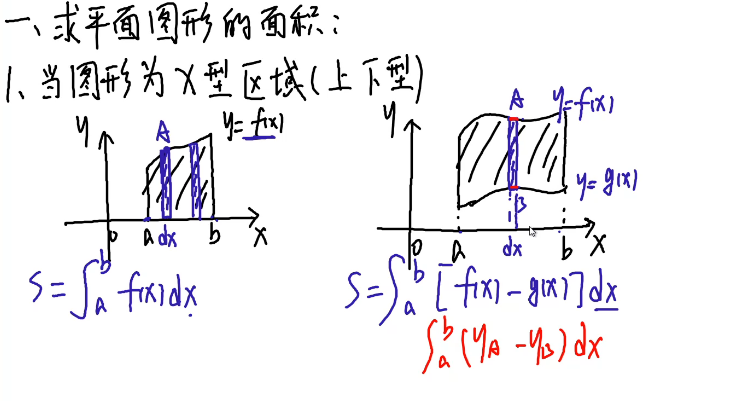 一、求平面图形的面积:
1、当图形为X型区域(上下型)
y A y=f(x)
0 a dx b x
S=∫_a^b f(x)dx
y A y=f(x)
y=g(x)
B
0 a dx b x
S=∫_a^b [f(x)-g(x)]dx
∫_a^b (y_A-y_B)dx